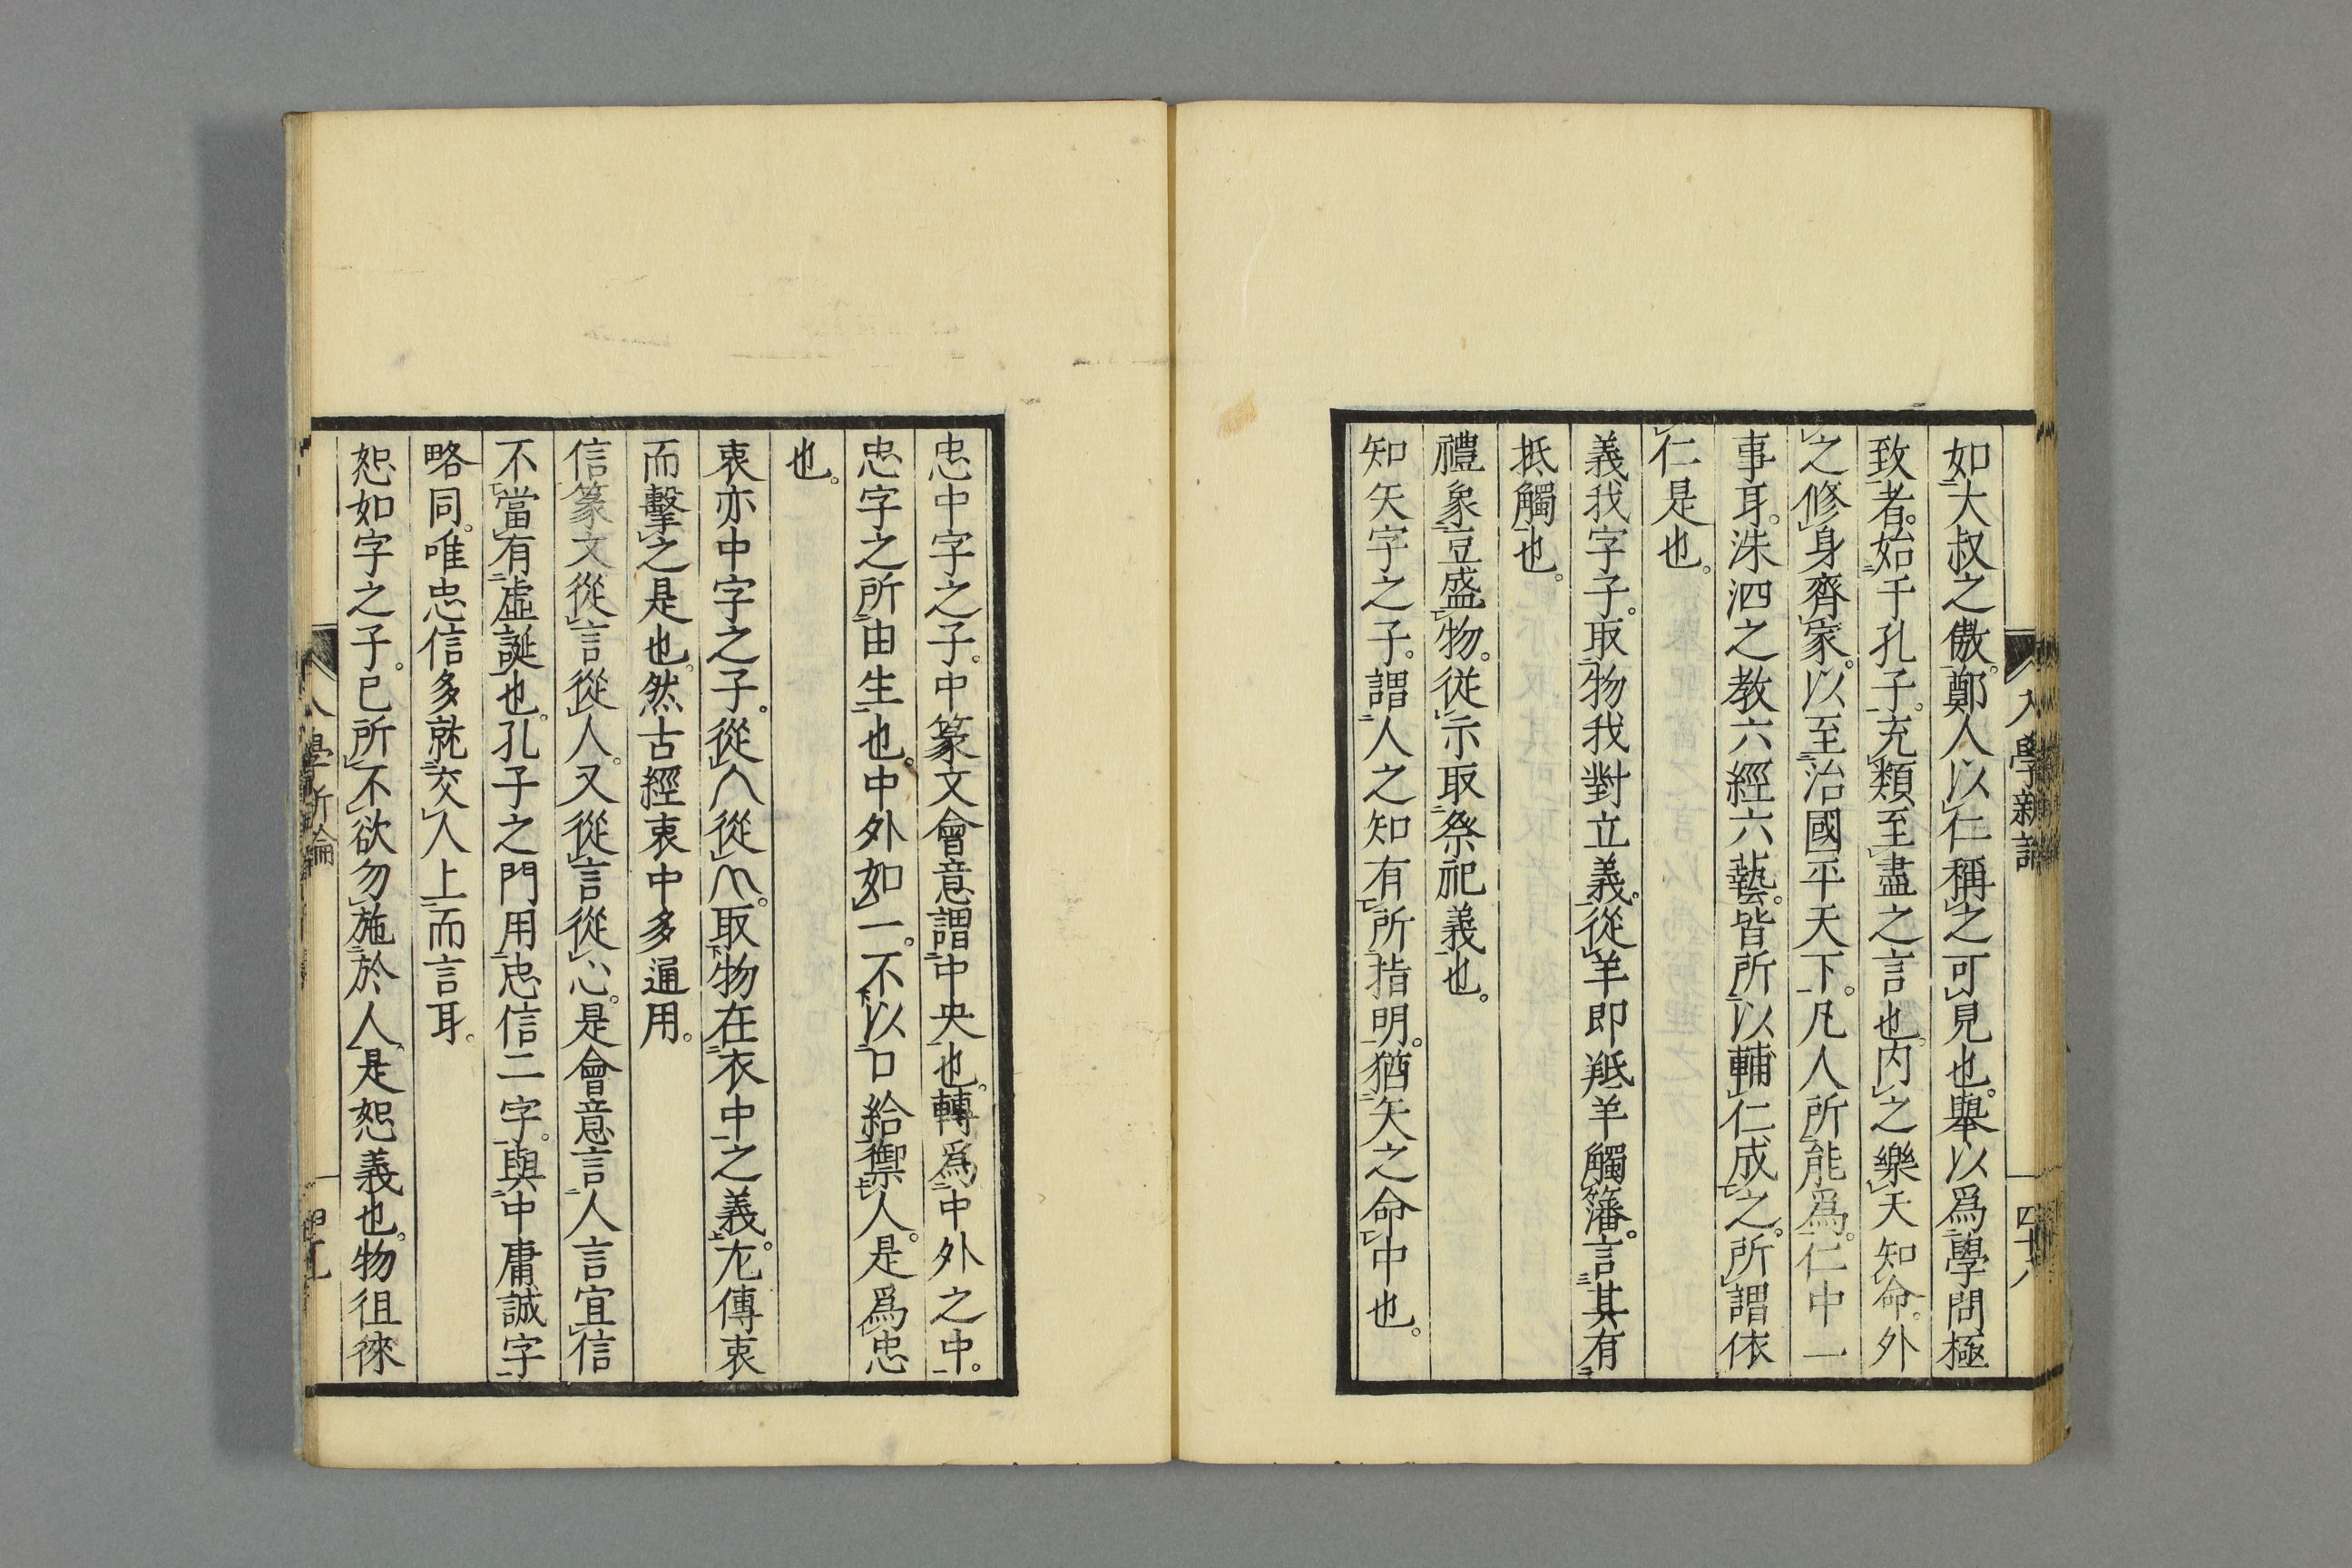 如大叔之傲。鄭人以仁稱之可見也。舉以爲學問極
致者。始于孔子。充類至盡之言也。内之樂天知命。外
之修身齊家。以至治國平天下。凡人所能爲。仁中一
事耳。洙泗之教六經六藝。皆所以輔仁成之。所謂依
仁是也。
義我字子。取物我對立義。從羊即羝羊觸藩。言其有
抵觸也。
禮象豆盛物。從示取祭祀義也。
知矢字之子。謂人之知有所指明。猶矢之命中也。
入學新論
四十八
忠中字之子。中篆文會意謂中央也。轉爲中外之中。
忠字之所由生也。中外如一。不以口給禦人。是爲忠
也。
衷亦中字之子。從 從 。取物在衣中之義。尢傳衷
而擊之是也。然古經衷中多通用。
信篆文從言從人。又從言從心。是會意言人言宜信
不當有虛誕也。孔子之門用忠信二字。與中庸誠字
略同。唯忠信多就交人上而言耳。
恕如字之子。己所不欲勿施於人。是恕義也。物徂徠
入學新論